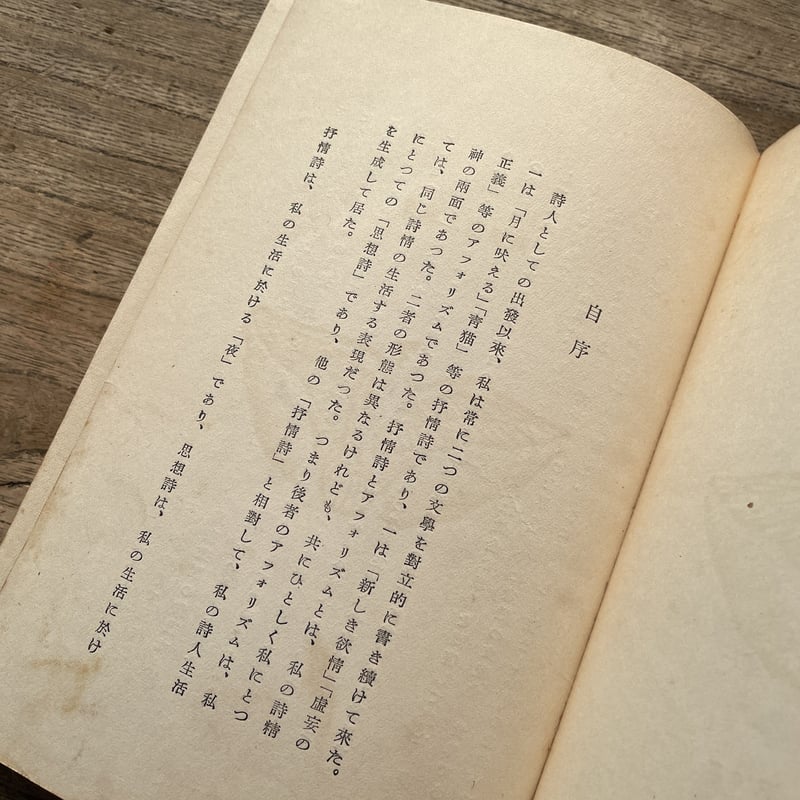 自序
詩人としての出發以來、私は常に二つの文學を對立的に書き續けて來た。
一は「月に吠える」「靑猫」等の抒情詩であり、一は「新しき欲情」「虛妄の
正義」等のアフォリズムであつた。抒情詩とアフォリズムとは、私の詩精
神の兩面であつた。二者の形態は異なるけれども、共にひとしく私にとつ
ては、同じ詩情の生活する表現だつた。つまり後者のアフォリズムは、私
にとつての「思想詩」であり、他の「抒情詩」と相對して、私の詩人生活
を生成して居た。
抒情詩は、私の生活に於ける「夜」であり、思想詩は、私の生活に於け